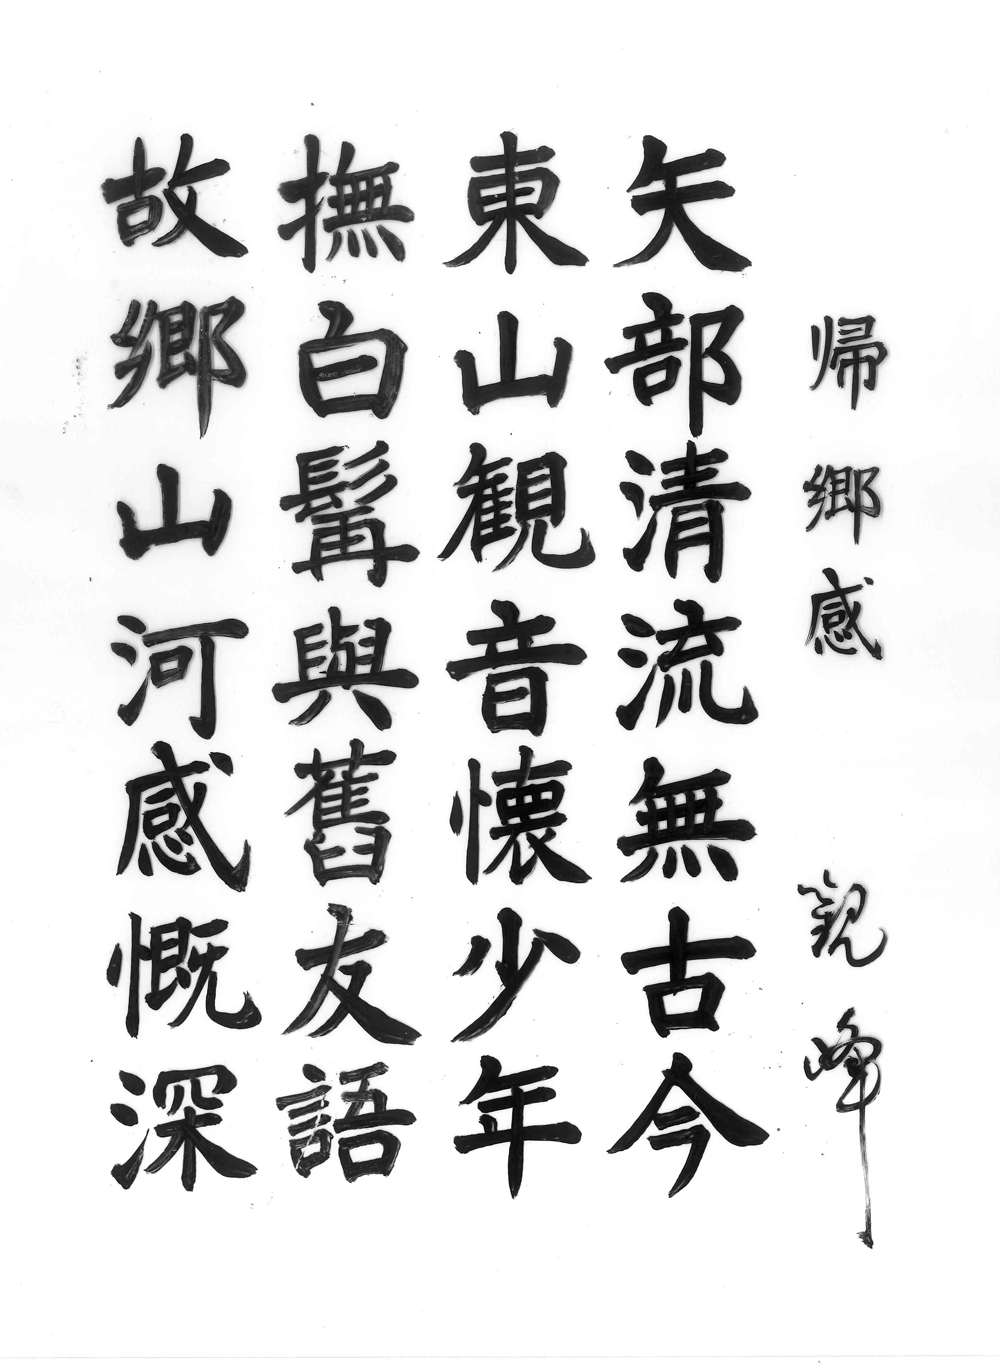 帰郷感 観峰
矢部清流無古今
東山観音懐少年
撫白髯與舊友語
故郷山河感慨深